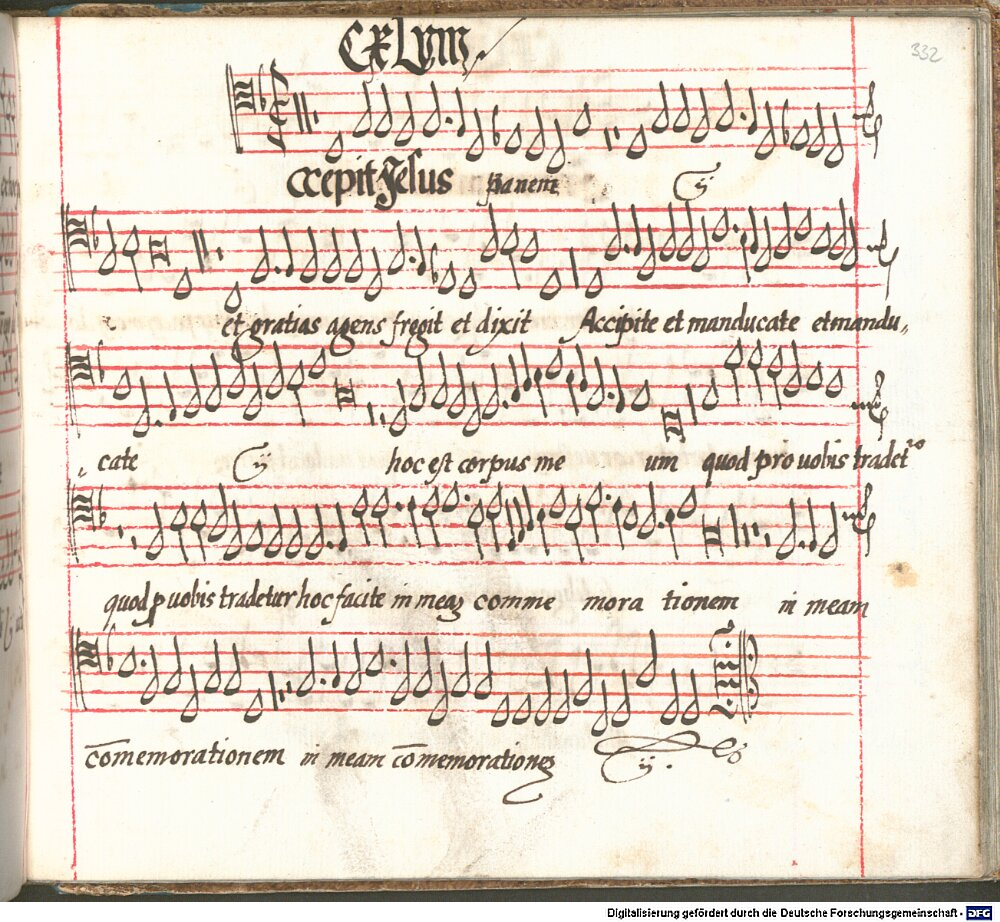 CXLVIII
332
ccepit Jesus panem ij
et gratias agens fregit et dixit Accipite et manducate et mandu„
„cate ij hoc est corpus me um quod pro uobis tradet᷑
quod ꝓ uobis tradetur hoc facite in meaȝ comme mora tionem in meam
com̄emorationem in meam com̄emorationeȝ ij.
Digitalisierung gefördert durch die Deutsche Forschungsgemeinschaft - DFG